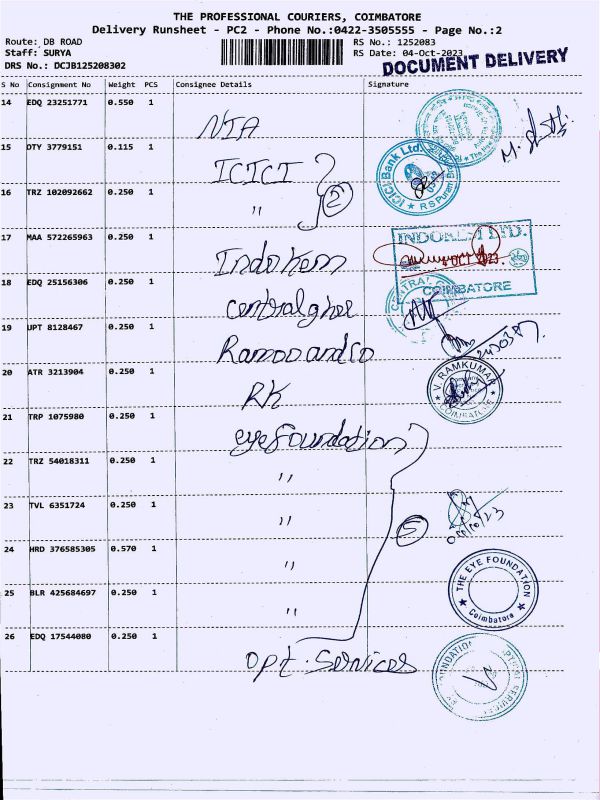 THE PROFESSIONAL COURIERS, COIMBATORE
Delivery Runsheet - PC2 - Phone No.:0422-3505555 - Page No.:2
Route: DB ROAD RS No.: 1252083
Staff: SURYA RS Date: 04-Oct-2023
DRS No.: DCJB125208302 DOCUMENT DELIVERY
S No Consignment No Weight PCS Consignee Details Signature
14 EDQ 23251771 0.550 1 NIA
15 DTY 3779151 0.115 1 ICICI
ICICI Bank Ltd.
16 TRZ 102092662 0.250 1 " 2
17 MAA 572265963 0.250 1 Indokem
COIMBATORE
18 EDQ 25156306 0.250 1 central ghee
CENTRAL
19 UPT 8128467 0.250 1 Ramoo and co
20 ATR 3213904 0.250 1 RK
V. RAMKUMAR
COIMBATORE
21 TRP 1075980 0.250 1 eye foundation
22 TRZ 54018311 0.250 1 "
23 TVL 6351724 0.250 1 " 5
24 HRD 376585305 0.570 1 "
THE EYE FOUNDATION
Coimbatore
25 BLR 425684697 0.250 1 "
26 EDQ 17544080 0.250 1 opt. Services